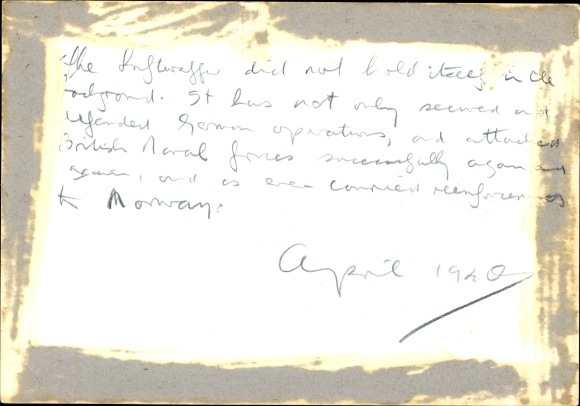 The Luftwaffe did not hold itself in the
background. It has not only secured and
defended German operations, and attacked
British Naval forces successfully again and
again, and as even carried reenforcements
to Norway.
April 1940